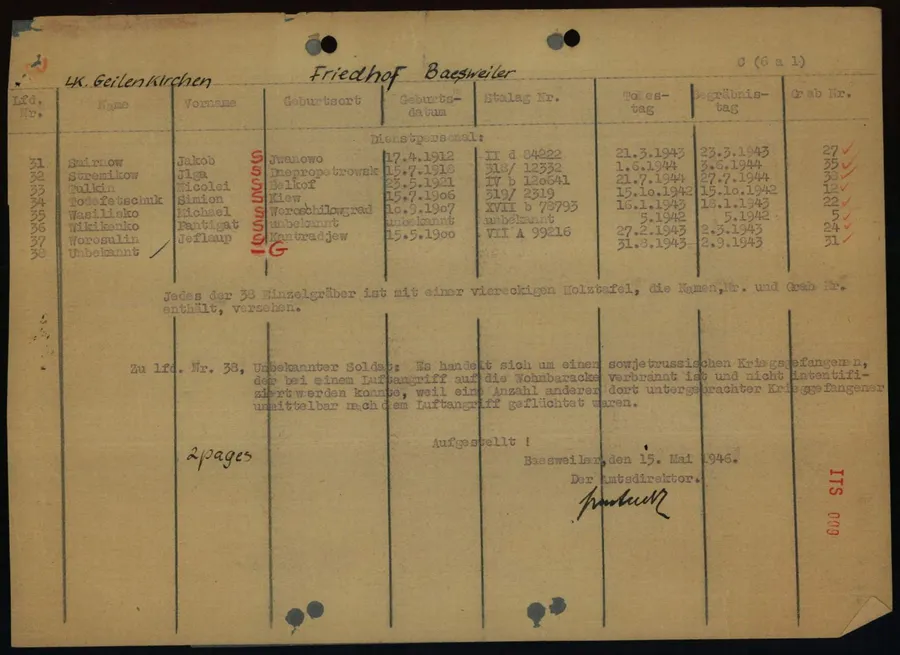 C (6 a 1)
LK. Geilenkirchen Friedhof Baesweiler
Lfd. Nr. Name Vorname Geburtsort Geburts-datum Stalag Nr. Todes-tag Begräbnis-tag Grab Nr.
Dienstpersonal:
31 Smirnow Jakob S Jwanowo 17.4.1912 II d 84222 21.3.1943 23.3.1943 27
32 Stremikow Jlga S Dnepropetrowsk 15.7.1918 318/ 12332 1.6.1944 3.6.1944 35
33 Tulkin Nicolei S Belkof 23.5.1921 IV b 120641 21.7.1944 27.7.1944 38
34 Todefetschuk Simion S Kiew 15.7.1906 319/ 2319 15.10.1942 15.10.1942 12
35 Wasilinko Michael S Woroschilowgrad 10.9.1907 XVII b 78793 16.1.1943 18.1.1943 22
36 Nikikenko Pantigat S unbekannt unbekannt unbekannt 5.1942 5.1942 5
37 Worosulin Jeflaup S Kantradjew 15.5.1900 VII A 99216 27.2.1943 2.3.1943 24
38 Unbekannt / G 31.8.1943 2.9.1943 31
Jedes der 38 Einzelgräber ist mit einer viereckigen Holztafel, die Namen,Nr. und Grab Nr.
enthält, versehen.
Zu lfd. Nr. 38, Unbekannter Soldat: Es handelt sich um einen sowjetrussischen Kriegsgefangenen,
der bei einem Luftangriff auf die Wohnbaracke verbrannt ist und nicht intentifi-
ziert werden konnte, weil eine Anzahl anderer dort untergebrachter Kriegsgefangener
unmittelbar nach dem Luftangriff geflüchtet waren.
Aufgestellt !
2 pages
Baesweiler,den 15. Mai 1946.
Der Amtsdirektor.
ITS 000